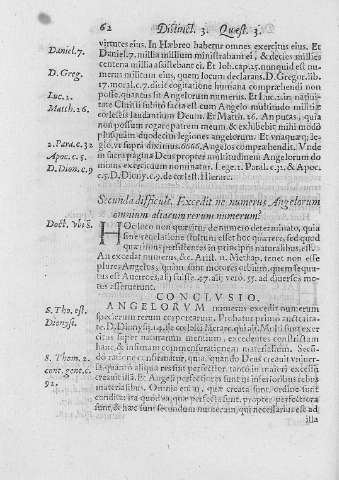 62 Distinct. 3. Quæst. 3.
Daniel. 7.
D. Greg.
Luc. 2.
Matth. 26.
2. Para. c. 32
Apoc. c. 5.
D. Dion. c. 9
virtutes eius. In Hæbreo habetur omnes exercitus eius. Et
Daniel. 7. millia millium ministrabant ei, & decies millies
centena millia assistebant ei. Et Iob. cap. 25. nunquid est nu-
merus militum eius, quem locum declarans D. Gregor. lib.
17. moral. c. 7. dicit cogitatione humana comprehendi non
posse quantus sit Angelorum numerus. Et Luc. 2. in nativi-
tate Christi subito facta est cum Angelo multitudo militiæ
cœlestis laudantium Deum. Et Matth. 26. An putas, quia
non possum rogare patrem meum, & exhibebit mihi modo
plusquam duodecim legiones angelorum. Et
vt supra diximus 6666. Angelos comprehendit. Vnde
in sacra pagina Deus propter multitudinem Angelorum do-
minus exercituum nominatur. Lege 2. Paral. c. 32. & Apoc.
c. 5. D. Diony. c. 9. de cœlest. Hierarc.
Secunda difficult. Excedit ne numerus Angelorum
omnium aliarum rerum numerum?
Doct. vbi S.
HOc loco non quæritur de numero determinato, quia
sine reuelatione stultum esset hoc quærere, sed quod
quærimus persistentes in principiis naturalibus, est.
An excedat numerus, &c. Arist. 12. Methap. tenet non esse
plures Angelos, quàm sunt motores orbium, quem sequu-
tus est Auerroes, alij fuisse 47. alij verò 55. ad diuersos mo-
tus asseruerunt.
CONCLVSIO.
S. Tho. est.
Dionysi.
S. Thom. 2.
cont. gent. c.
92.
ANGELORVM numerus excedit numerum
specierum rerum corporearum. Probatur primo auctorita-
te. D. Dionys. 14. de cœlesti Hierarc. qui ait. Multi sunt exer-
citus super naturalium mentium, excedentes constrictam
hanc, & infirmam commensurationem materialium. Secū-
do ratione consirmatur, quia, quando Deus creauit vniuer-
sa, quantò aliqua res sint perfectior, tantò in maiori excessu
creauit illa. Et Angeli perfectiores sunt his inferioribus rebus
materialibus. Omnia enim, quæ creata sunt, ordine sunt
condita: ita quod ea, quæ perfecta sunt, propter perfectiora
sunt, & hæc sunt secundum numerum, qui necessarius est ad
illa